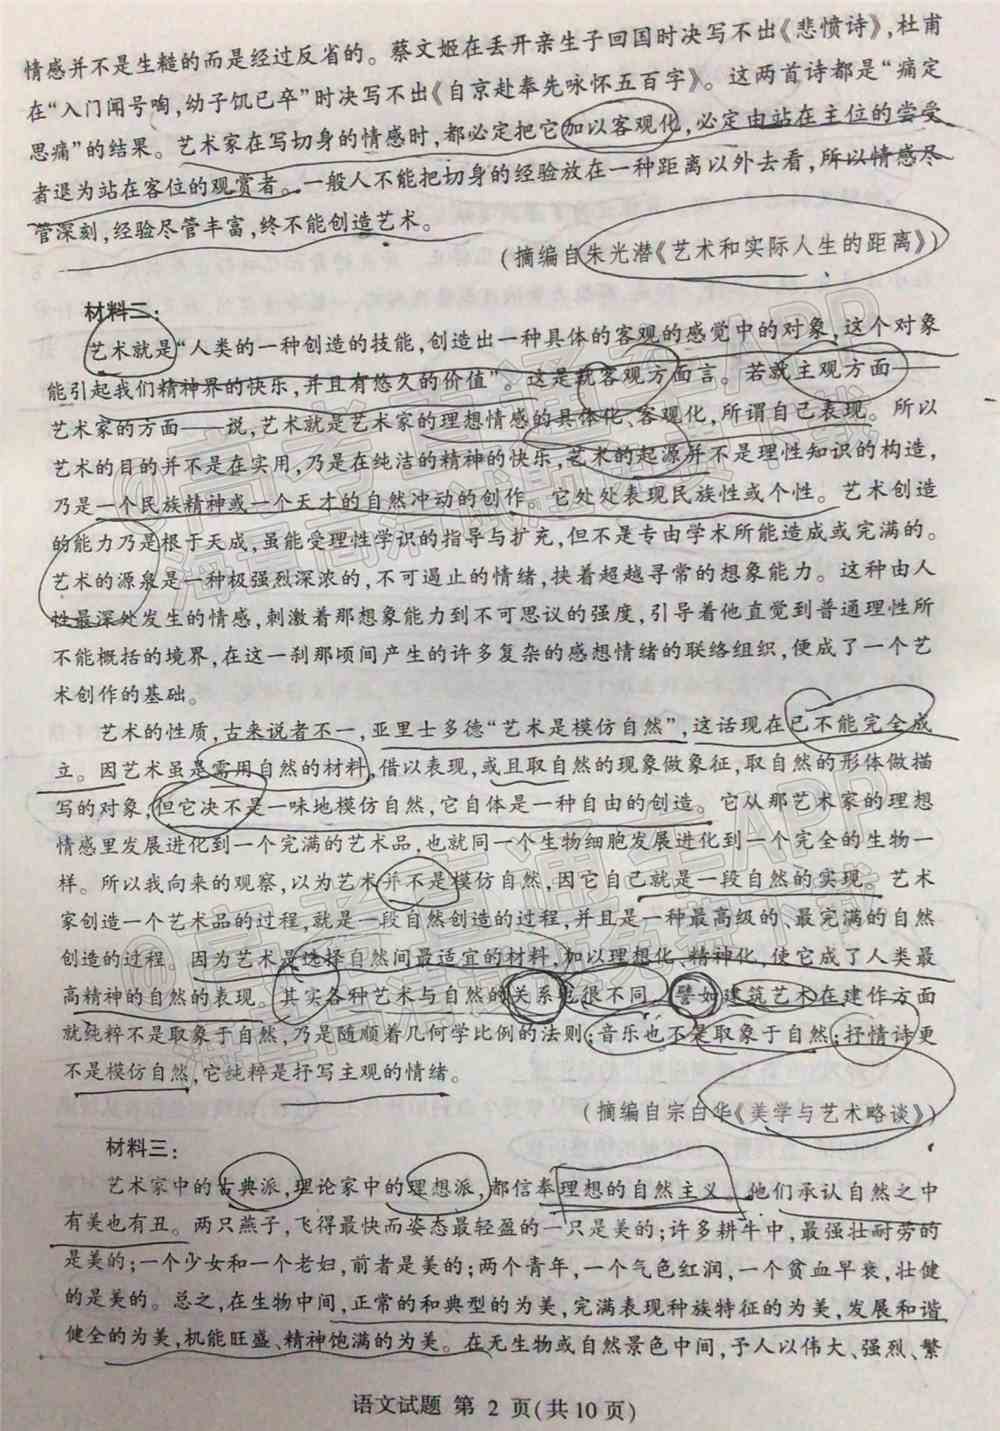 情感并不是生糙的而是经过反省的。蔡文姬在丢开亲生子回国时决写不出《悲愤诗》,杜甫
在“入门闻号啕,幼子饥已卒”时决写不出《自京赴奉先咏怀五百字》。这两首诗都是“痛定
思痛”的结果。艺术家在写切身的情感时,都必定把它加以客观化,必定由站在主位的尝受
者退为站在客位的观赏者。一般人不能把切身的经验放在一种距离以外去看,所以情感尽
管深刻,经验尽管丰富,终不能创造艺术。
(摘编自朱光潜《艺术和实际人生的距离》)
材料二:
艺术就是“人类的一种创造的技能,创造出一种具体的客观的感觉中的对象,这个对象
能引起我们精神界的快乐,并且有悠久的价值”。这是就客观方面言。若就主观方面——
艺术家的方面——说,艺术就是艺术家的理想情感的具体化、客观化,所谓自己表现。所以
艺术的目的并不是在实用,乃是在纯洁的精神的快乐,艺术的起源并不是理性知识的构造,
乃是一个民族精神或一个天才的自然冲动的创作。它处处表现民族性或个性。艺术创造
的能力乃是根于天成,虽能受理性学识的指导与扩充,但不是专由学术所能造成或完满的。
艺术的源泉是一种极强烈深浓的,不可遏止的情绪,挟着超越寻常的想象能力。这种由人
性最深处发生的情感,刺激着那想象能力到不可思议的强度,引导着他直觉到普通理性所
不能概括的境界,在这一刹那顷间产生的许多复杂的感想情绪的联络组织,便成了一个艺
术创作的基础。
艺术的性质,古来说者不一,亚里士多德“艺术是模仿自然”,这话现在已不能完全成
立。因艺术虽是需用自然的材料,借以表现,或且取自然的现象做象征,取自然的形体做描
写的对象,但它决不是一味地模仿自然,它自体是一种自由的创造。它从那艺术家的理想
情感里发展进化到一个完满的艺术品,也就同一个生物细胞发展进化到一个完全的生物一
样。所以我向来的观察,以为艺术并不是模仿自然,因它自己就是一段自然的实现。艺术
家创造一个艺术品的过程,就是一段自然创造的过程,并且是一种最高级的、最完满的自然
创造的过程。因为艺术是选择自然间最适宜的材料,加以理想化、精神化,使它成了人类最
高精神的自然的表现。其实各种艺术与自然的关系也很不同,譬如建筑艺术在建作方面
就纯粹不是取象于自然,乃是随顺着几何学比例的法则;音乐也不是取象于自然;抒情诗更
不是模仿自然,它纯粹是抒写主观的情绪。
(摘编自宗白华《美学与艺术略谈》)
材料三:
艺术家中的古典派,理论家中的理想派,都信奉理想的自然主义。他们承认自然之中
有美也有丑。两只燕子,飞得最快而姿态最轻盈的一只是美的;许多耕牛中,最强壮耐劳的
是美的;一个少女和一个老妇,前者是美的;两个青年,一个气色红润,一个贫血早衰,壮健
的是美的。总之,在生物中间,正常的和典型的为美,完满表现种族特征的为美,发展和谐
健全的为美,机能旺盛、精神饱满的为美。在无生物或自然景色中间,予人以伟大、强烈、繁
语文试题 第 2 页(共10页)